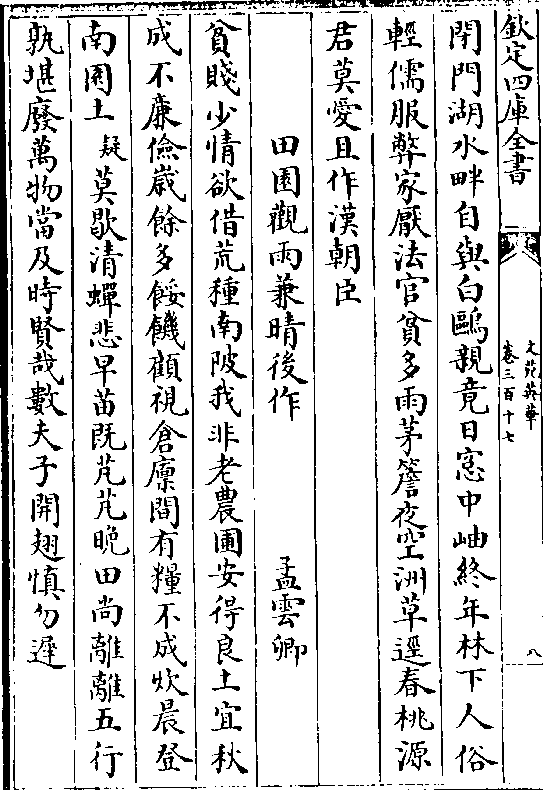 欽定四庫全書
文苑英華
卷三百十七
八
閉門湖水畔自與白鷗親竟日窓中岫終年林下人俗
輕儒服弊家厭法官貧多雨茅簷夜空洲草逕春桃源
君莫愛且作漢朝臣
田園觀雨兼晴後作
孟雲卿
貧賤少情欲借荒種南陂我非老農圃安得良土宜秋
成不廉儉嵗餘多餒饑顧視倉廩間有糧不成炊晨登
南園土疑莫歇清蟬悲早苗既芃芃晚田尚離離五行
孰堪廢萬物當及時賢哉數夫子開翅慎勿遲